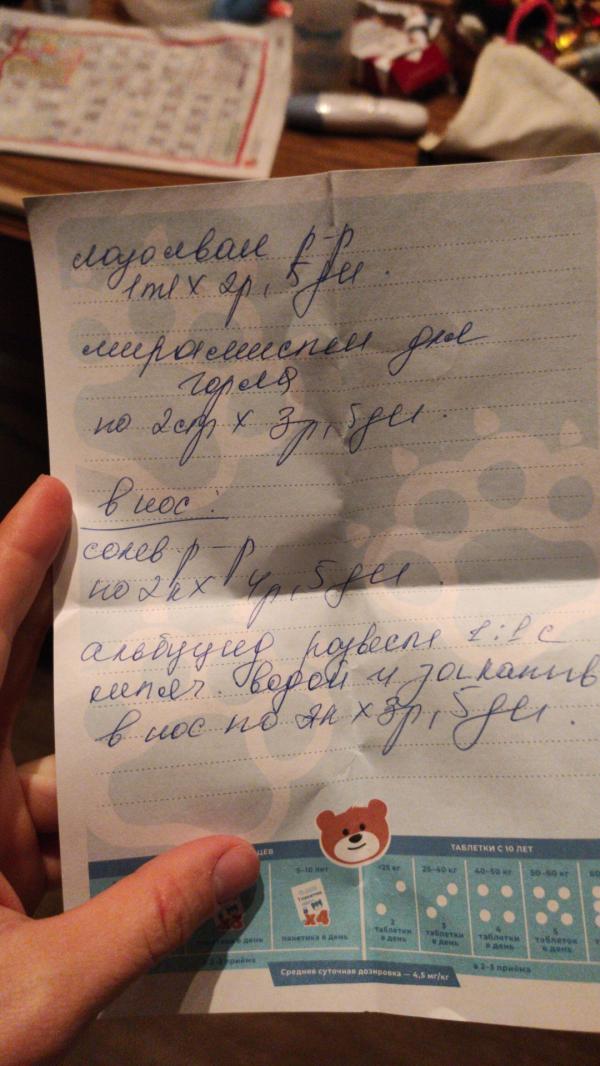 лазолван р-р
1ml х 2р, 5 дн.
мирамистин для
горла
по 2 спр х 3р, 5 дн.
в нос:
солев р-р
по 2к х 4р, 5 дн.
альбуцид развести 1:1 с
кипяч. водой и закапыв
в нос по 2к х 3р, 5 дн.
ТАБЛЕТКИ С 10 ЛЕТ
5-10 лет
x4
пакетика в день
<25 кг
25-40 кг
40-50 кг
50-60 кг
2 таблетки в день
3 таблетки в день
4 таблетки в день
5 таблеток в день
в 2-3 приёма
Средняя суточная дозировка — 4,5 мг/кг